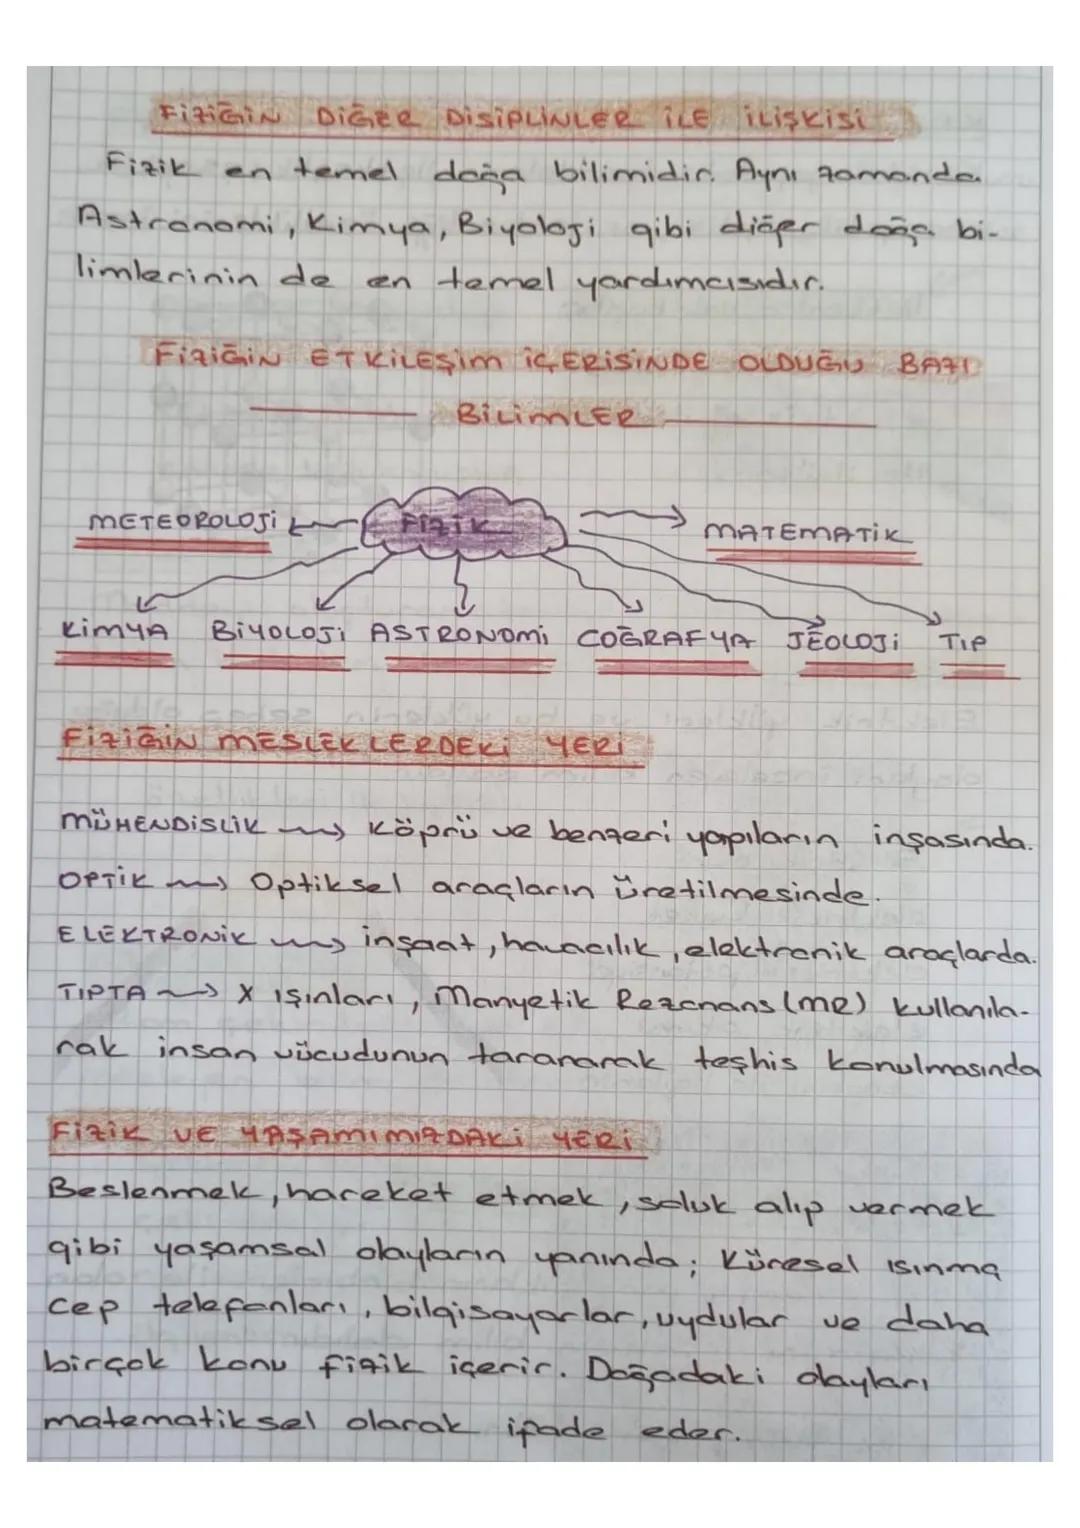 FİZİĞİN DİĞER DİSİPLİNLER İLE İLİŞKİSİ
Fizik en temel doğa bilimidir. Aynı zamanda
Astronomi, Kimya, Biyoloji gibi diğer doğa bi-
limlerinin de en temel yardımcısıdır.
FİZİĞİN ETKİLEŞİM İÇERİSİNDE OLDUĞU BAZI
BİLİMLER
METEOROLOJİ FİZİK MATEMATİK
KİMYA BİYOLOJİ ASTRONOMİ COĞRAFYA JEOLOJİ TIP
FİZİĞİN MESLEKLERDEKİ YERİ
MÜHENDİSLİK → Köprü ve benzeri yapıların inşasında.
OPTİK → Optiksel araçların üretilmesinde.
ELEKTRONİK → inşaat, havacılık, elektronik araçlarda.
TIPTA → X ışınları, Manyetik Rezonans (MR) kullanıla-
rak insan vücudunun taranarak teşhis konulmasında
FİZİK VE YAŞAMIMIZDAKİ YERİ
Beslenmek, hareket etmek, soluk alıp vermek
gibi yaşamsal olayların yanında; Küresel ısınma
cep telefonları, bilgisayarlar, uydular ve daha
birçok konu fizik içerir. Doğadaki olayları
matematiksel olarak ifade eder.